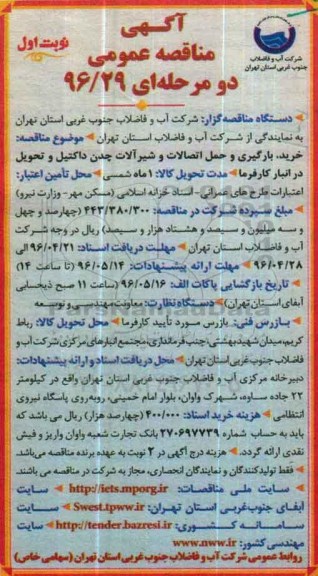 آگهی
مناقصه عمومی
دو مرحله‌ای ۹۶/۲۹
نوبت اول
شرکت آب و فاضلاب
جنوب غربی استان تهران
دستگاه مناقصه‌گزار: شرکت آب و فاضلاب جنوب غربی استان تهران
به نمایندگی از شرکت آب و فاضلاب استان تهران موضوع مناقصه:
خرید، بارگیری و حمل اتصالات و شیرآلات چدن داکتیل و تحویل
در انبار کارفرما مدت تحویل کالا: ۱ ماه شمسی محل تأمین اعتبار:
اعتبارات طرح های عمرانی- اسناد خزانه اسلامی (مسکن مهر- وزارت نیرو)
مبلغ سپرده شرکت در مناقصه: ۴۴۳/۳۸۰/۳۰۰ (چهارصد و چهل
و سه میلیون و سیصد و هشتاد هزار و سیصد) ریال در وجه شرکت
آب و فاضلاب استان تهران مهلت دریافت اسناد: ۹۶/۰۴/۲۱ الی
۹۶/۰۴/۲۸ مهلت ارائه پیشنهادات: ۹۶/۰۵/۱۴ (تا ساعت ۱۴)
تاریخ بازگشایی پاکات الف: ۹۶/۰۵/۱۶ (ساعت ۱۱ صبح ذیحسابی
آبفای استان تهران) دستگاه نظارت: معاونت مهندسی و توسعه
بازرس فنی: بازرس مورد تأیید کارفرما محل تحویل کالا: رباط
کریم، میدان شهید بهشتی، جنب فرمانداری، مجتمع انبارهای مرکزی شرکت آب و
فاضلاب جنوب غربی استان تهران محل دریافت اسناد و ارائه پیشنهادات:
دبیرخانه مرکزی آب و فاضلاب جنوب غربی استان تهران واقع در کیلومتر
۲۲ جاده ساوه، شهرک واوان، بلوار امام خمینی، روبه‌روی پاسگاه نیروی
انتظامی هزینه خرید اسناد: ۴۰۰/۰۰۰ (چهارصد هزار) ریال می باشد که
باید به حساب شماره ۲۷۰۶۹۷۷۳۹ بانک تجارت شعبه واوان واریز و فیش
نقدی ارائه گردد. هزینه درج آگهی در ۲ نوبت به عهده برنده مناقصه می‌باشد.
فقط تولیدکنندگان و نمایندگان انحصاری، مجاز به شرکت در مناقصه می باشند.
سایت ملی مناقصات: http://iets.mporg.ir سایت
آبفای جنوب‌غربی استان تهران: Swest.tpww.ir سایت
سامانه کشوری: http://tender.bazresi.ir سایت
مهندسی کشور: www.nww.ir
روابط عمومی شرکت آب و فاضلاب جنوب غربی استان تهران (سهامی خاص)